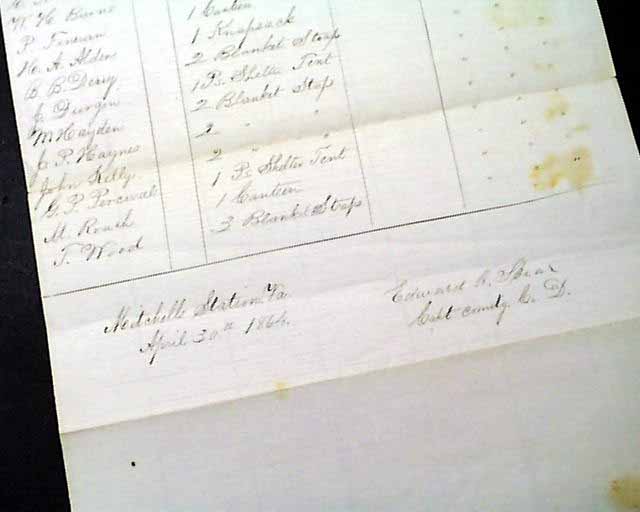 W. H. Burns 1 Canteen
P. Fineran 1 Knapsack
H. A. Alden 2 Blanket Straps
B. B. Derry 1 Pc Shelter Tent "
J. Durgin 2 Blanket Straps " "
M Hayden 2 " " " "
J. P. Haynes 2 " " " "
John Kelly 1 Pc Shelter Tent " "
G. P. Percival 1 Canteen " "
M. Roach 3 Blanket Straps
T. Wood
Mitchells Station Va.
April 30th 1864.
Edward A.
Capt comdg Co. D.